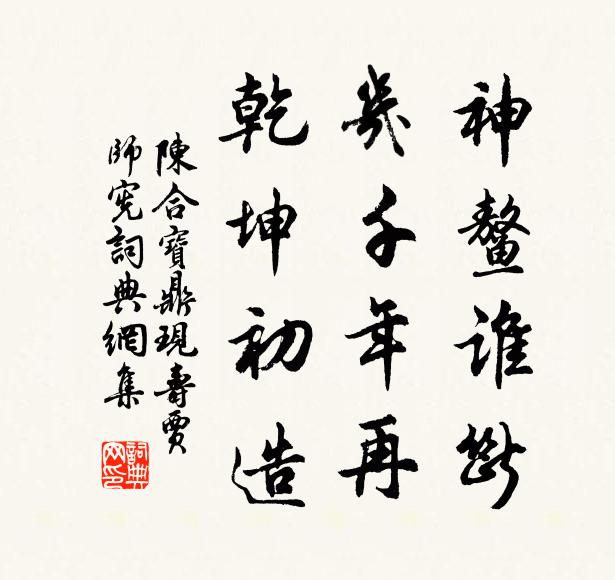 神鳌誰斷
幾千年再
乾坤初造
陳合寶鼎現壽賈
師宪詞典網集
詞典
网印